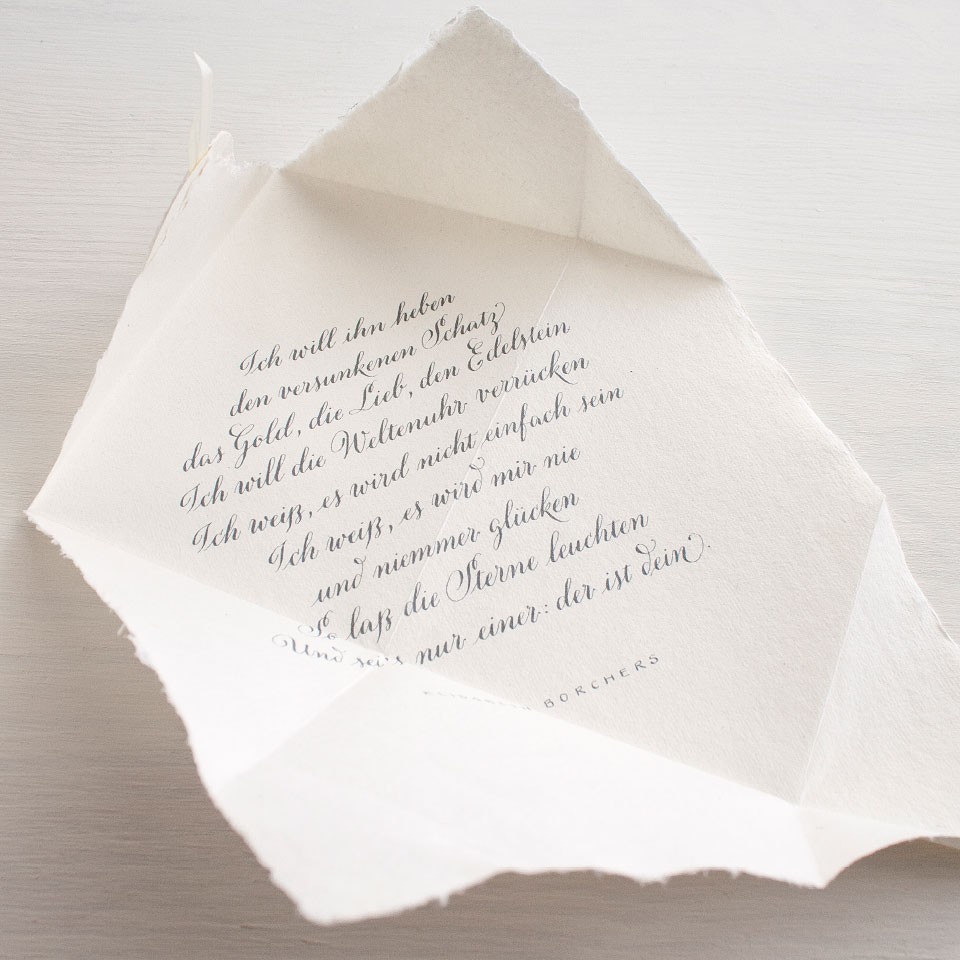 Ich will ihn heben
den versunkenen Schatz
das Gold, die Lieb, den Edelstein
Ich will die Weltenuhr verrücken
Ich weiß, es wird nicht einfach sein
Ich weiß, es wird mir nie
und niemmer glücken
So laß die Sterne leuchten
Und sei's nur einer: der ist dein.
ELISABETH BORCHERS